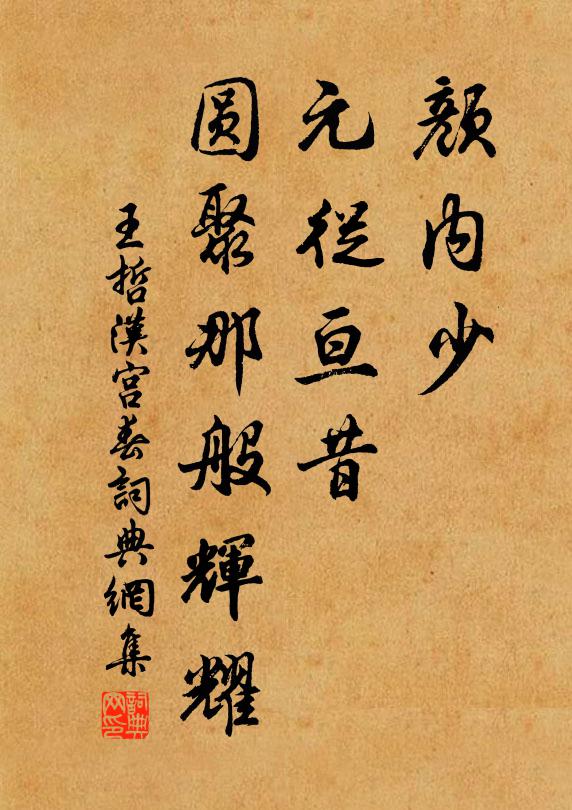 顔内少
元從亘昔
圓聚那般輝耀
王哲漢宮春詞典網集
詞典网印